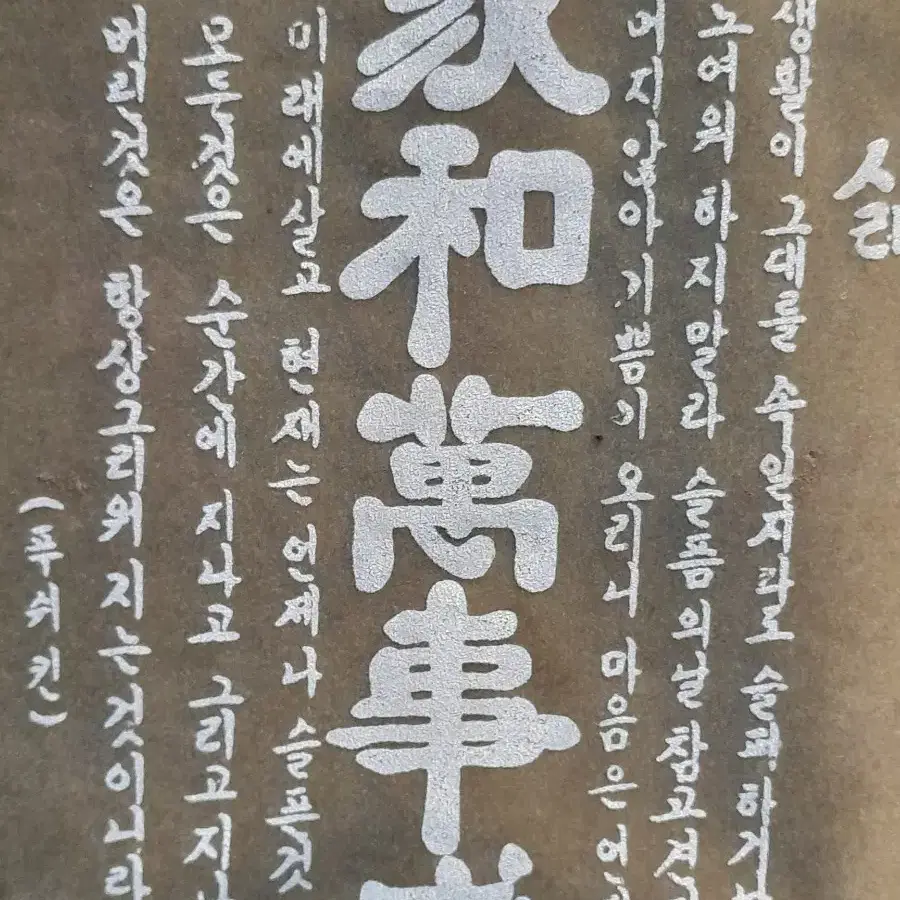 생활이 그대를 속일지라도 슬퍼하거
노여워 하지말라 슬픔의날 참고
머지않아 기쁨이 오리니 마음은
家和萬事
미래에살고 현재는 언제나 슬픈것
모두것은 순간에 지나고 그리고 지
버린것은 항상그리워 지는것이니라
(푸쉬킨)